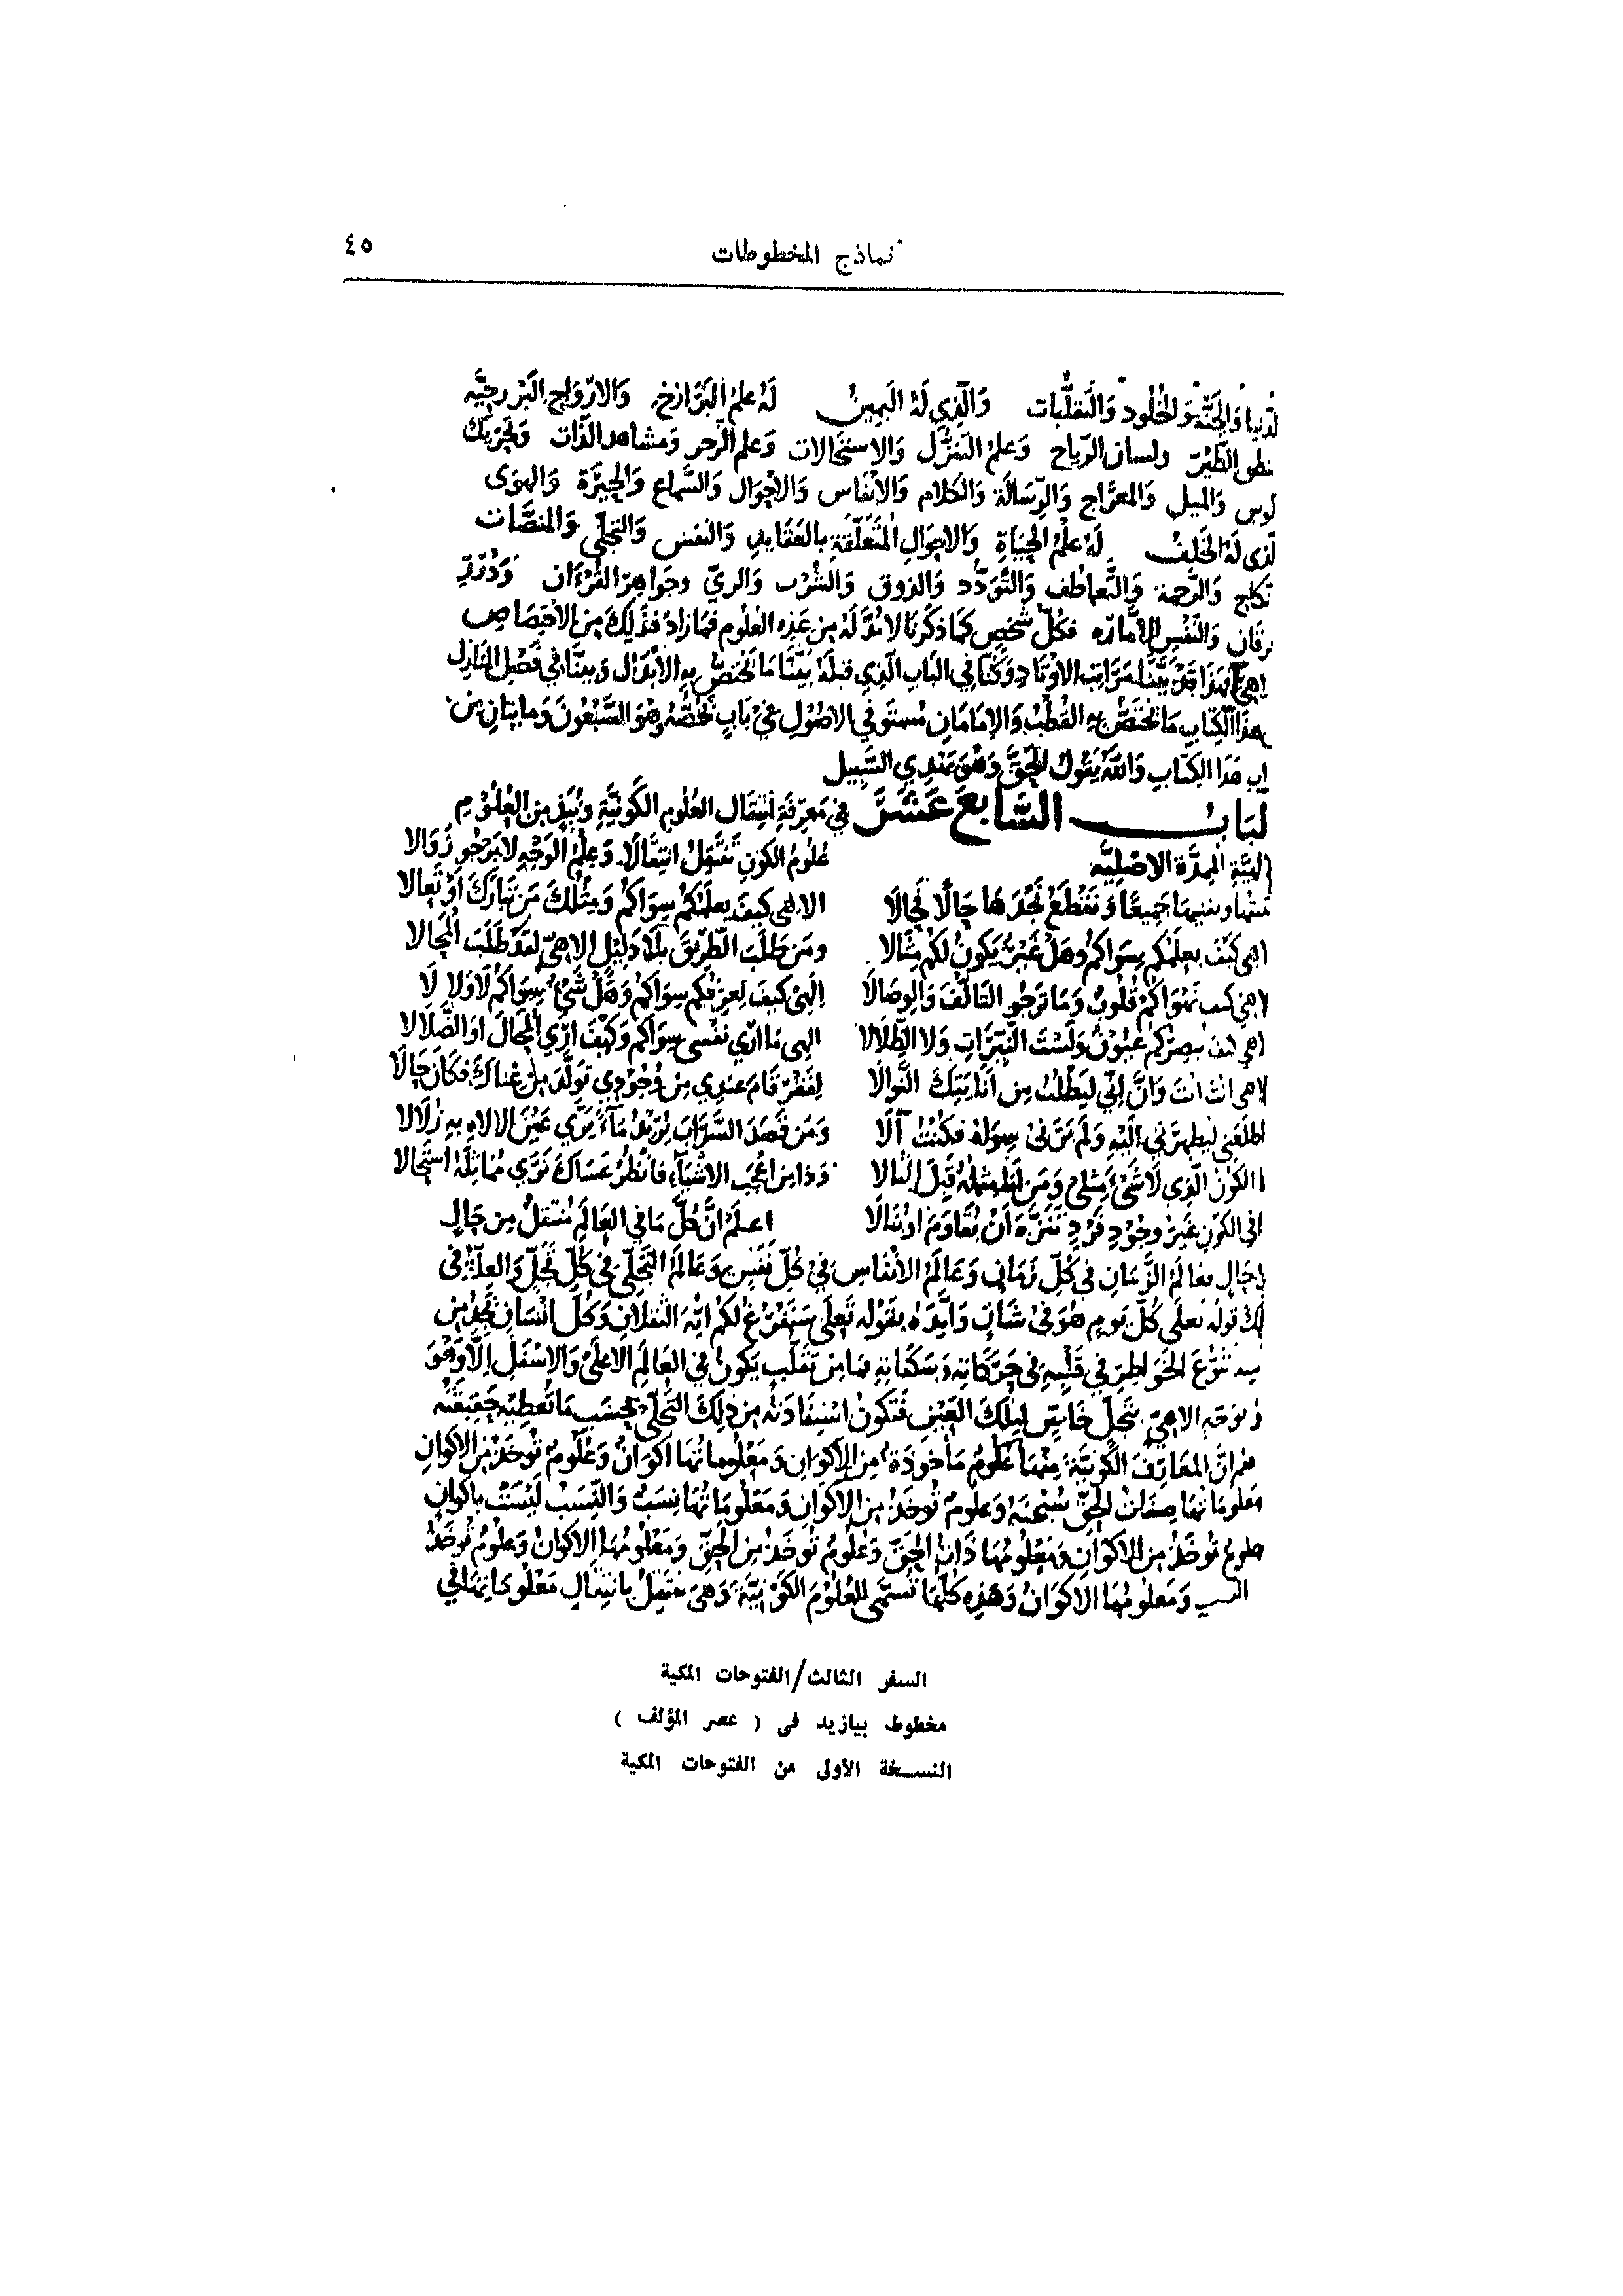 نماذج المخطوطات ٤٥
لدنيا والجنة والخلود والتقلبات والذي له اليمين له علم البرازخ والارواح البرزخية
نطق الطير ولسان الرياح وعلم التنزل والاستحالات وعلم الزجر ومشاهد الذات وتحريك
نوس والميل والمعراج والرسالة والكلام والانفاس والاحوال والسماع والحيرة والهوى
لذى له الخلف له علم الحياة والاحوال المتعلقة بالعقايد والنفس والتجلي والمنصات
نكاح والرحمة والتعاطف والتودد والذوق والشرب والري وجواهر القرءان ودرر
رقان والنفس الامارة فكل شخص كما ذكرنا لا بد له من هذه العلوم فما زاد فذلك من الاختصاص
اهي فهذا قد بينا مراتب الاوتاد وكنا في الباب الذي قبله بينا ما يختص به الابدال وبينا في فصل المنازل
هذا الكتاب ما يختص به القطب والامامان مستوفى الاصول في باب يخصه وهو السبعون ومايتان من
اب هذا الكتاب والله يقول الحق وهو يهدي السبيل
لباب السابع عشر في معرفة انتقال العلوم الكونية ونبذ من العلوم
الهية الممدة الاصلية علوم الكون تنتقل انتقالا وعلم الوجه لا يرجو زوالا
نثبتها وننفيها جميعا ونقطع نجدها حالا فحالا الاهي كيف يعلمكم سواكم ومثلك من تبارك او تعالا
اهي كيف يعلمكم سواكم وهل غير يكون لكم مثالا ومن طلب الطريق بلا دليل الاهي لقد طلب المحالا
اهي كيف تهواكم قلوب وما ترجو التالف والوصالا الهي كيف يعرفكم سواكم وهل شيء سواكم لا ولا لا
اهي كيف تبصركم عيون ولست النيرات ولا الظلالا الهي ما ارى نفسي سواكم وكيف ارى المحال او الضلالا
اهي انت انت وان اني ليطلب من انايتك النوالا لفقر قام عندي من وجودي تولد من غناك فكان حالا
اطلعني ليظهرني اليه ولم يرني سواه فكنت آلا ومن قصد السراب يريد ماء يرى عين الالاه به زلالا
ا الكون الذي لا شيء مثلي ومن انا مثله قبل المثالا وذا من اعجب الاشياء فانظر عساك ترى مماثله استحالا
افي الكون غير وجود فرد تنزه ان يقاوم او ينالا اعلم ان كل ما في العالم منتقل من حال
لى حال فعالم الزمان في كل زمان وعالم الانفاس في كل نفس وعالم التجلي في كل تجل والعلة في
لك قوله تعلى كل يوم هو في شان وايده بقوله تعلى سنفرغ لكم ايه الثقلان وكل انسان يجد من
نفسه تنوع الخواطر في قلبه في حركاته وسكناته فما من تقلب يكون في العالم الاعلى والاسفل الا وهو
ن توجه الاهي بتجل خاص لتلك العين فتكون استفادته من ذلك التجلي بحسب ما تعطيه حقيقته
علم ان المعارف الكونية منها علوم ماخوذة من الاكوان ومعلوماتها اكوان وعلوم توخذ من الاكوان
معلوماتها صفات الحق سبحنه وعلوم توخذ من الاكوان ومعلوماتها نسب والنسب ليست باكوان
علوم توخذ من الاكوان ومعلومها ذات الحق وعلوم توخذ من الحق ومعلومها الاكوان وعلوم توخذ
النسب ومعلومها الاكوان وهذه كلها تسمى العلوم الكونية وهي تنتقل بانتقال معلوماتها في
السفر الثالث/الفتوحات المكية
مخطوط بيازيد فى ( عصر المؤلف )
النسخة الأولى من الفتوحات المكية